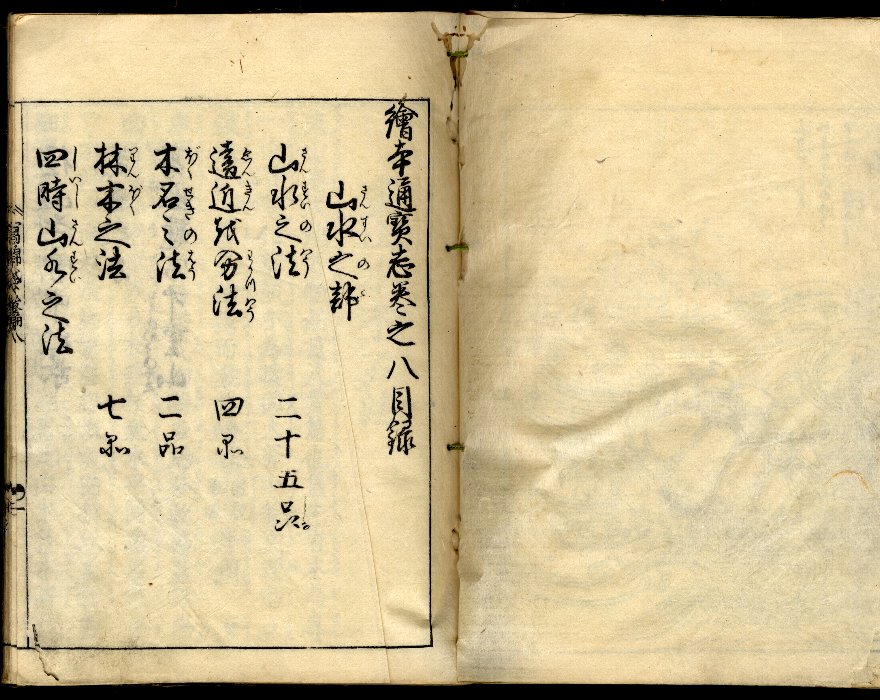 繪本通寳志巻之八目録
山水之部
山水之法 二十五品
遠近或分法 四品
木石之法 二品
林木之法 七品
四時山水之法